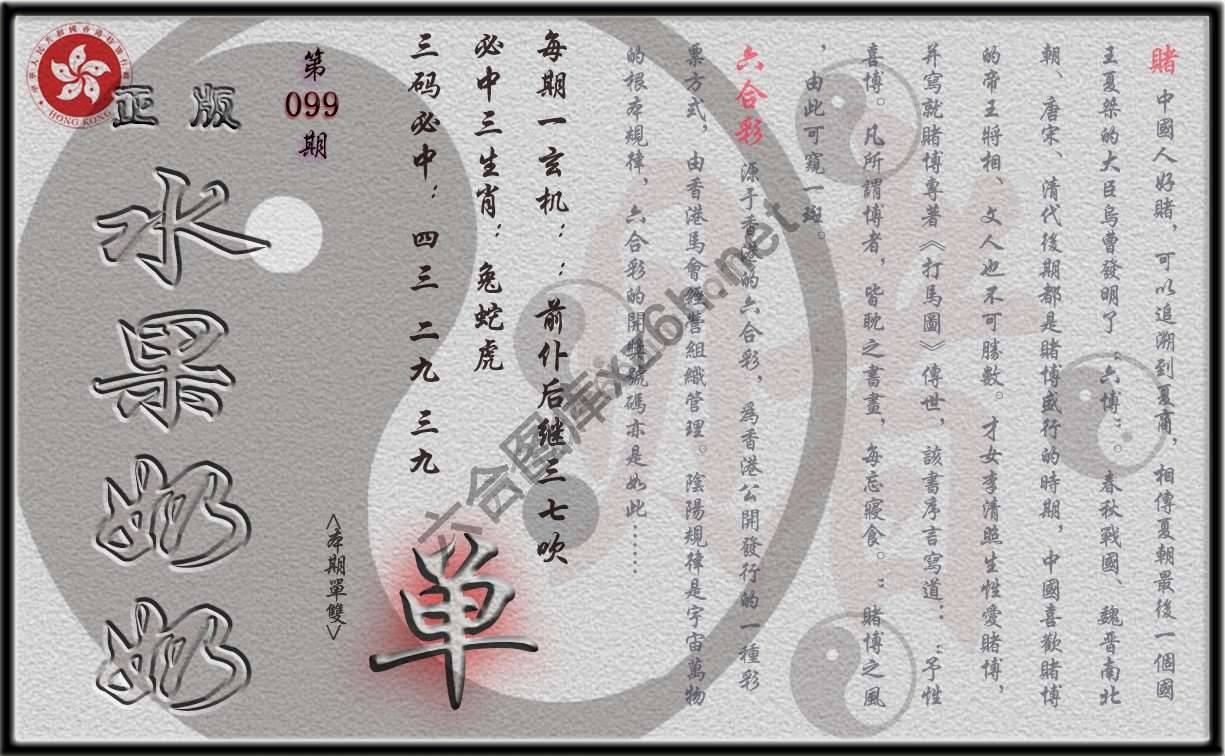 賭 中國人好賭，可以追溯到夏商，相傳夏朝最後一個國
王夏桀的大臣烏曹發明了“六博”。春秋戰國、魏晋南北
朝、唐宋、清代後期都是賭博盛行的時期，中國喜歡賭博
的帝王將相、文人也不可勝數。才女李清照生性愛賭博，
并寫就賭博專著《打馬圖》傳世，該書序言寫道：“予性
喜博。凡所謂博者，皆耽之書畫，每忘寢食。”賭博之風
，由此可窺一斑。
六合彩 源于香港的六合彩，爲香港公開發行的一種彩
票方式，由香港馬會經營組織管理。陰陽規律是宇宙萬物
的根本規律，六合彩的開獎號碼亦是如此……
每期一玄机：：前仆后继三七吹
必中三生肖：兔蛇虎
三码必中：四三 二九 三九
單
<本期單雙>
第
099
期
正版
水果奶奶
HONG KONG
六合图库xg6h.net